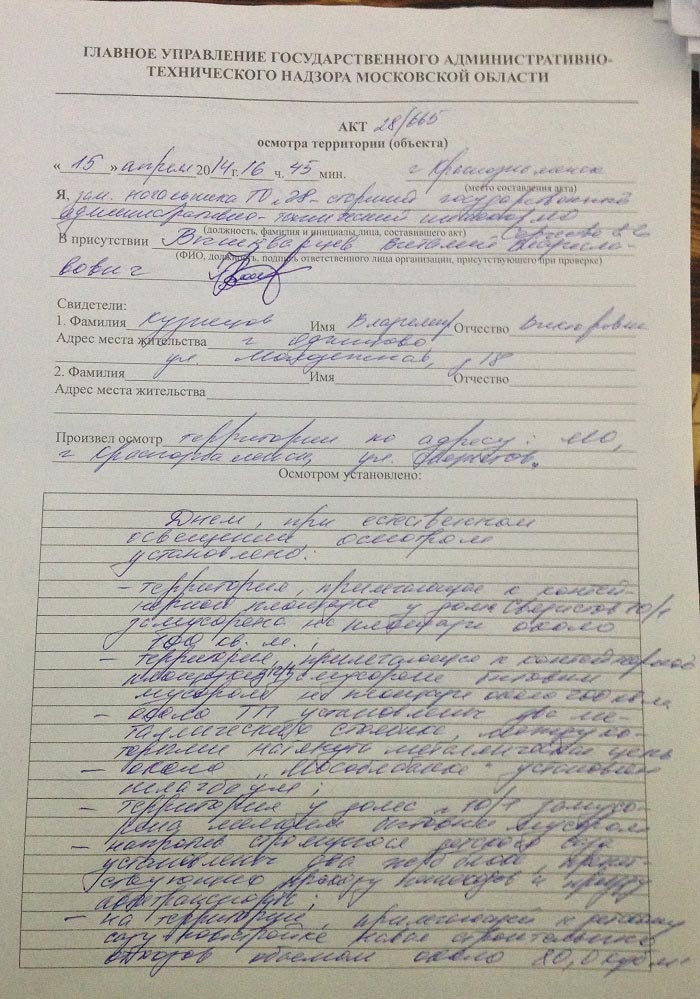 ГЛАВНОЕ УПРАВЛЕНИЕ ГОСУДАРСТВЕННОГО АДМИНИСТРАТИВНО-
ТЕХНИЧЕСКОГО НАДЗОРА МОСКОВСКОЙ ОБЛАСТИ
АКТ 28/665
осмотра территории (объекта)
« 15 » апреля 2014 г. 16 ч. 45 мин. г Краснознаменск
(место составления акта)
Я, зам. начальника ТО № 28 - старший государственный
административно-технический инспектор МО
(должность, фамилия и инициалы лица, составившего акт)
В присутствии
(ФИО, должность, подпись ответственного лица организации, присутствующего при проверке)
Свидетели:
1. Фамилия Кузнецов Имя Владимир Отчество Викторович
Адрес места жительства г Одинцово
ул. Молодежная, д 18
2. Фамилия Имя Отчество
Адрес места жительства
Произвел осмотр территории по адресу: МО,
г Краснознаменск, ул.
Осмотром установлено:
Днем, при естественном
освещении, осмотром
установлено:
- территория, прилегающая к контей-
нерной площадке у дома 10/1
замусорена на площади около
100 кв. м.;
- территория, прилегающая к контейнерной
площадке замусорена бытовым
мусором на площади около 200 кв.м
- около ТП установлены два ме-
таллических столбика, между ко-
торыми натянута металлическая цепь
- около "Мособлбанка" установлен
шлагбаум;
- территория у дома № 10/1 замусо-
рена мелким бытовым мусором
- напротив строящегося детского сада
установлены два препят-
ствующие проходу пешеходов и проезду
автотранспорта;
- на территории, прилегающей к детскому
саду строительных
отходов объемом около 80,0 куб.м.